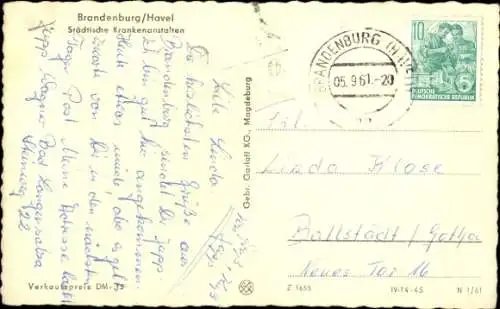 Brandenburg/Havel
Städtische Krankenanstalten
Liebe Linda
Die herzlichsten Grüße aus
Brandenburg sendet Dir Jupp.
Ich bin gut hier angekommen.
Heute etwas müde, aber es geht.
von Dir in den nächsten
Tagen Post. Meine Adresse lautet
Jupp Wagner Bad Langensalza
Steinweg 22
Verkaufspreis DM
Gebr. Garloff KG., Magdeburg
BRANDENBURG (HAVEL)
05.9.61.-20
10
5
DEUTSCHE
DEMOKRATISCHE REPUBLIK
Frl.
Linda Klose
Ballstädt / Gotha
Neues Tor 16
Z 1655
IV-14-45
N 1/61